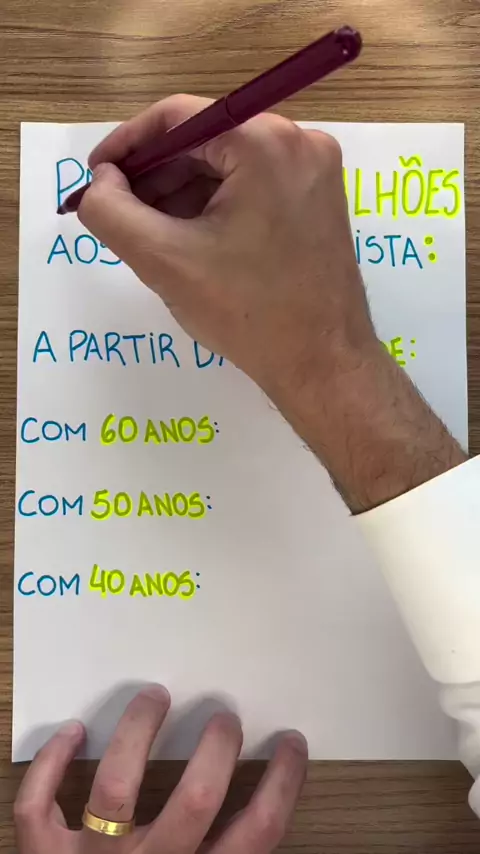 LHÕES
AOS ISTA:
A PARTIR E:
COM 60 ANOS:
COM 50 ANOS:
COM 40 ANOS: